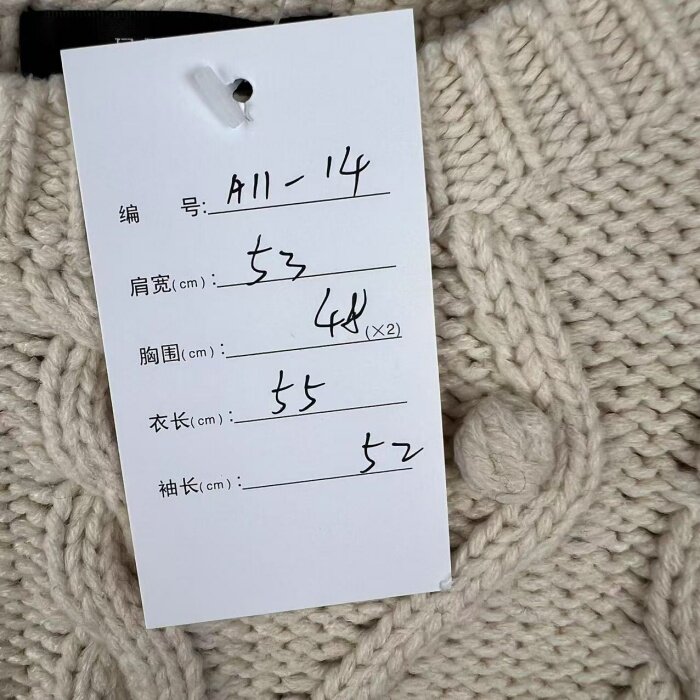 编 号: A11-14
肩宽(cm): 53
胸围(cm): 48 (×2)
衣长(cm): 55
袖长(cm): 52